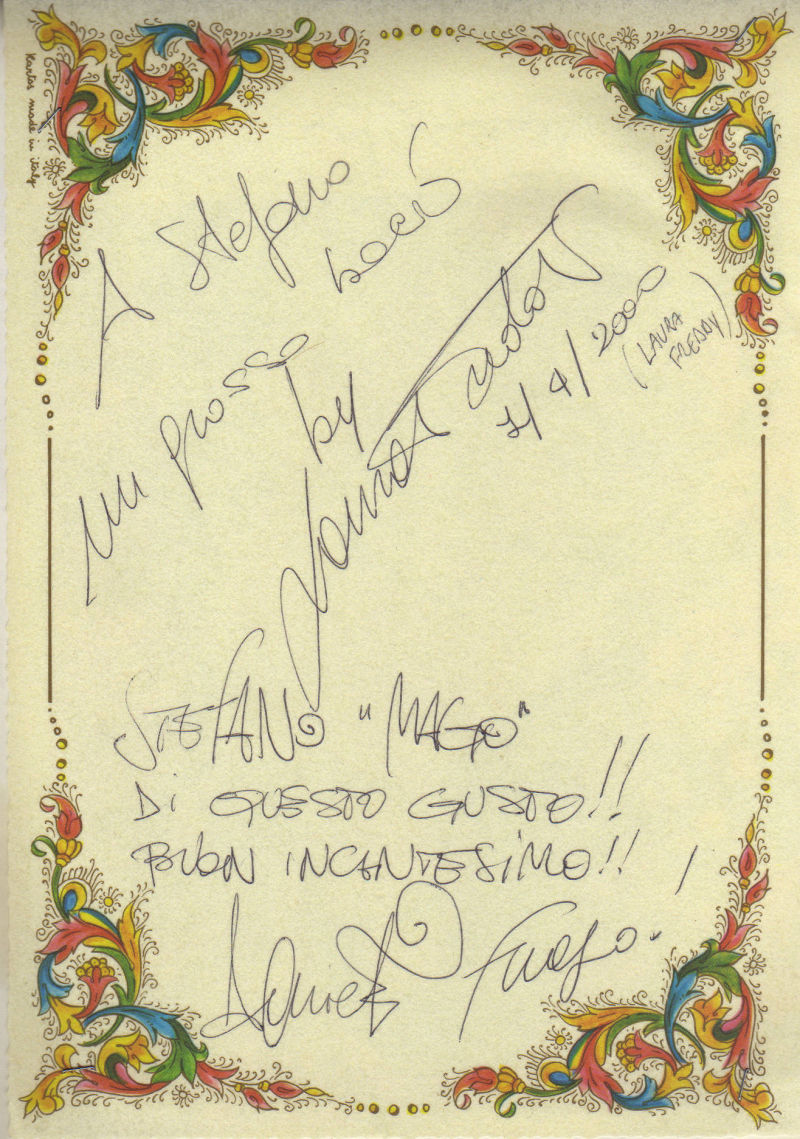 Kartos made in italy
A Stefano
un grosso bacio
by
7/4/2000
(LAURA
FREDDY)
STEFANO "MAGO"
DI QUESTO GUSTO!!
BUON INCANTESIMO!!